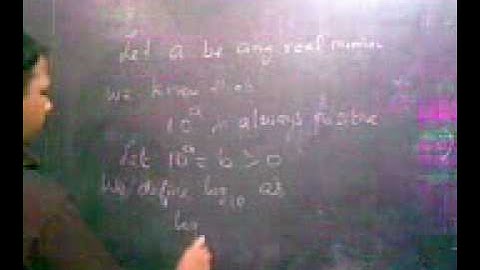 Let a be any real number
We know that
10^a is always positive
Let 10^a = b > 0
We define log_10 as
log